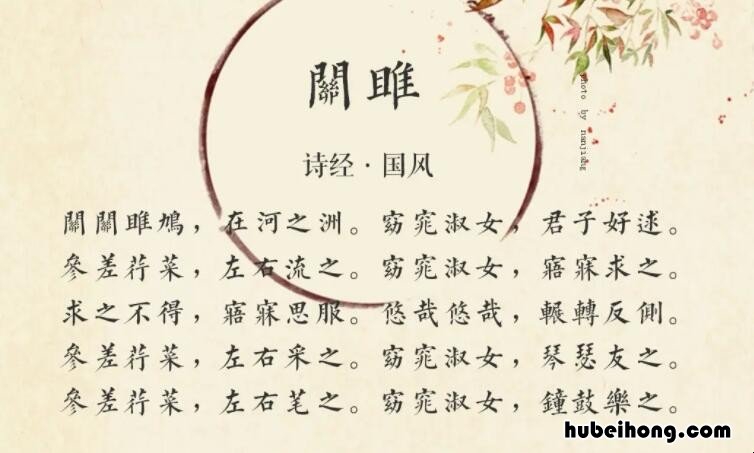 關雎
诗经·国风
關關雎鳩，在河之洲。窈窕淑女，君子好逑。
參差荇菜，左右流之。窈窕淑女，寤寐求之。
求之不得，寤寐思服。悠哉悠哉，輾轉反側。
參差荇菜，左右采之。窈窕淑女，琴瑟友之。
參差荇菜，左右笔之。窈窕淑女，鐘鼓樂之。
photo by nanjiang
hubeihong.com